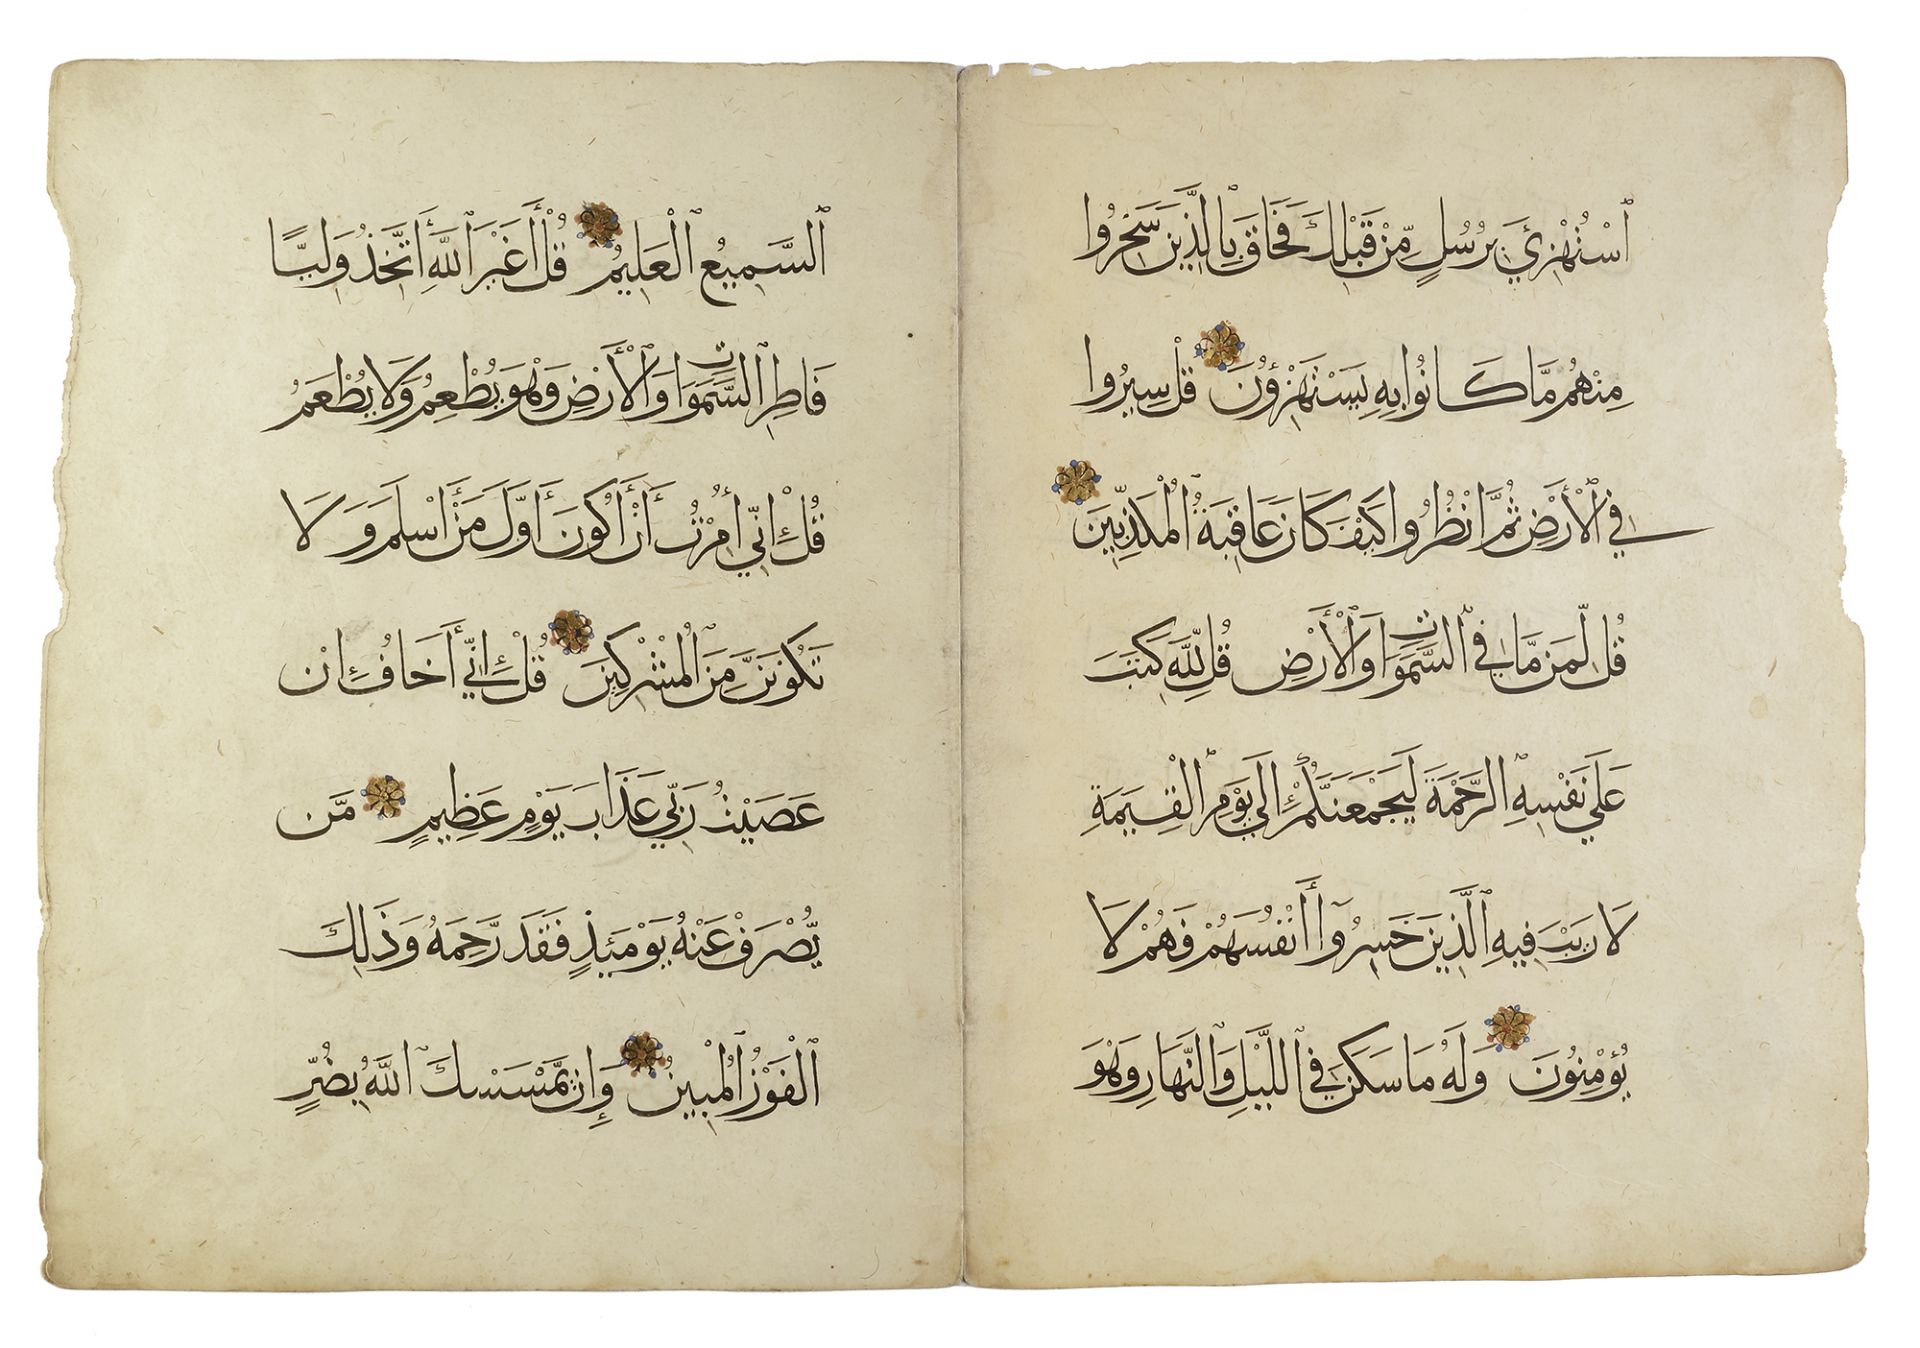 ٱسْتُهْزِئَ بِرُسُلٍ مِّنْ قَبْلِكَ فَحَاقَ بِالَّذِينَ سَخِرُوا
مِنْهُم مَّا كَانُوا بِهِ يَسْتَهْزِؤُنَ قُلْ سِيرُوا
فِي ٱلْأَرْضِ ثُمَّ ٱنْظُرُوا كَيْفَ كَانَ عَاقِبَةُ ٱلْمُكَذِّبِينَ
قُل لِّمَن مَّا فِي ٱلسَّمَوَاتِ وَٱلْأَرْضِ قُل لِلَّهِ كَتَبَ
عَلَى نَفْسِهِ ٱلرَّحْمَةَ لَيَجْمَعَنَّكُمْ إِلَى يَوْمِ ٱلْقِيَمَةِ
لَا رَيْبَ فِيهِ ٱلَّذِينَ خَسِرُوٓا أَنْفُسَهُمْ فَهُمْ لَا
يُؤْمِنُونَ وَلَهُ مَا سَكَنَ فِي ٱللَّيْلِ وَٱلنَّهَارِ وَهُوَ
ٱلسَّمِيعُ ٱلْعَلِيمُ قُلْ أَغَيْرَ ٱللَّهِ أَتَّخِذُ وَلِيًّا
فَاطِرِ ٱلسَّمَوَاتِ وَٱلْأَرْضِ وَهُوَ يُطْعِمُ وَلَا يُطْعَمُ
قُلْ إِنِّي أُمِرْتُ أَنْ أَكُونَ أَوَّلَ مَنْ أَسْلَمَ وَلَا
تَكُونَنَّ مِنَ ٱلْمُشْرِكِينَ قُلْ إِنِّي أَخَافُ إِنْ
عَصَيْتُ رَبِّي عَذَابَ يَوْمٍ عَظِيمٍ مَّن
يُّصْرَفْ عَنْهُ يَوْمَئِذٍ فَقَدْ رَّحِمَهُ وَذَلِكَ
ٱلْفَوْزُ ٱلْمُبِينُ وَإِن يَّمْسَسْكَ ٱللَّهُ بِضُرٍّ